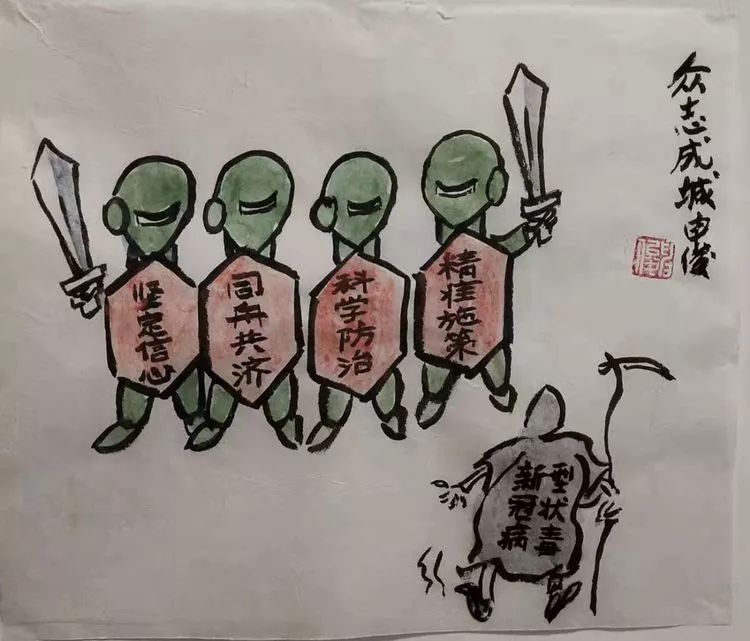 众志成城 申俊
坚定信心
同舟共济
科学防治
精准施策
新型
冠状
病毒